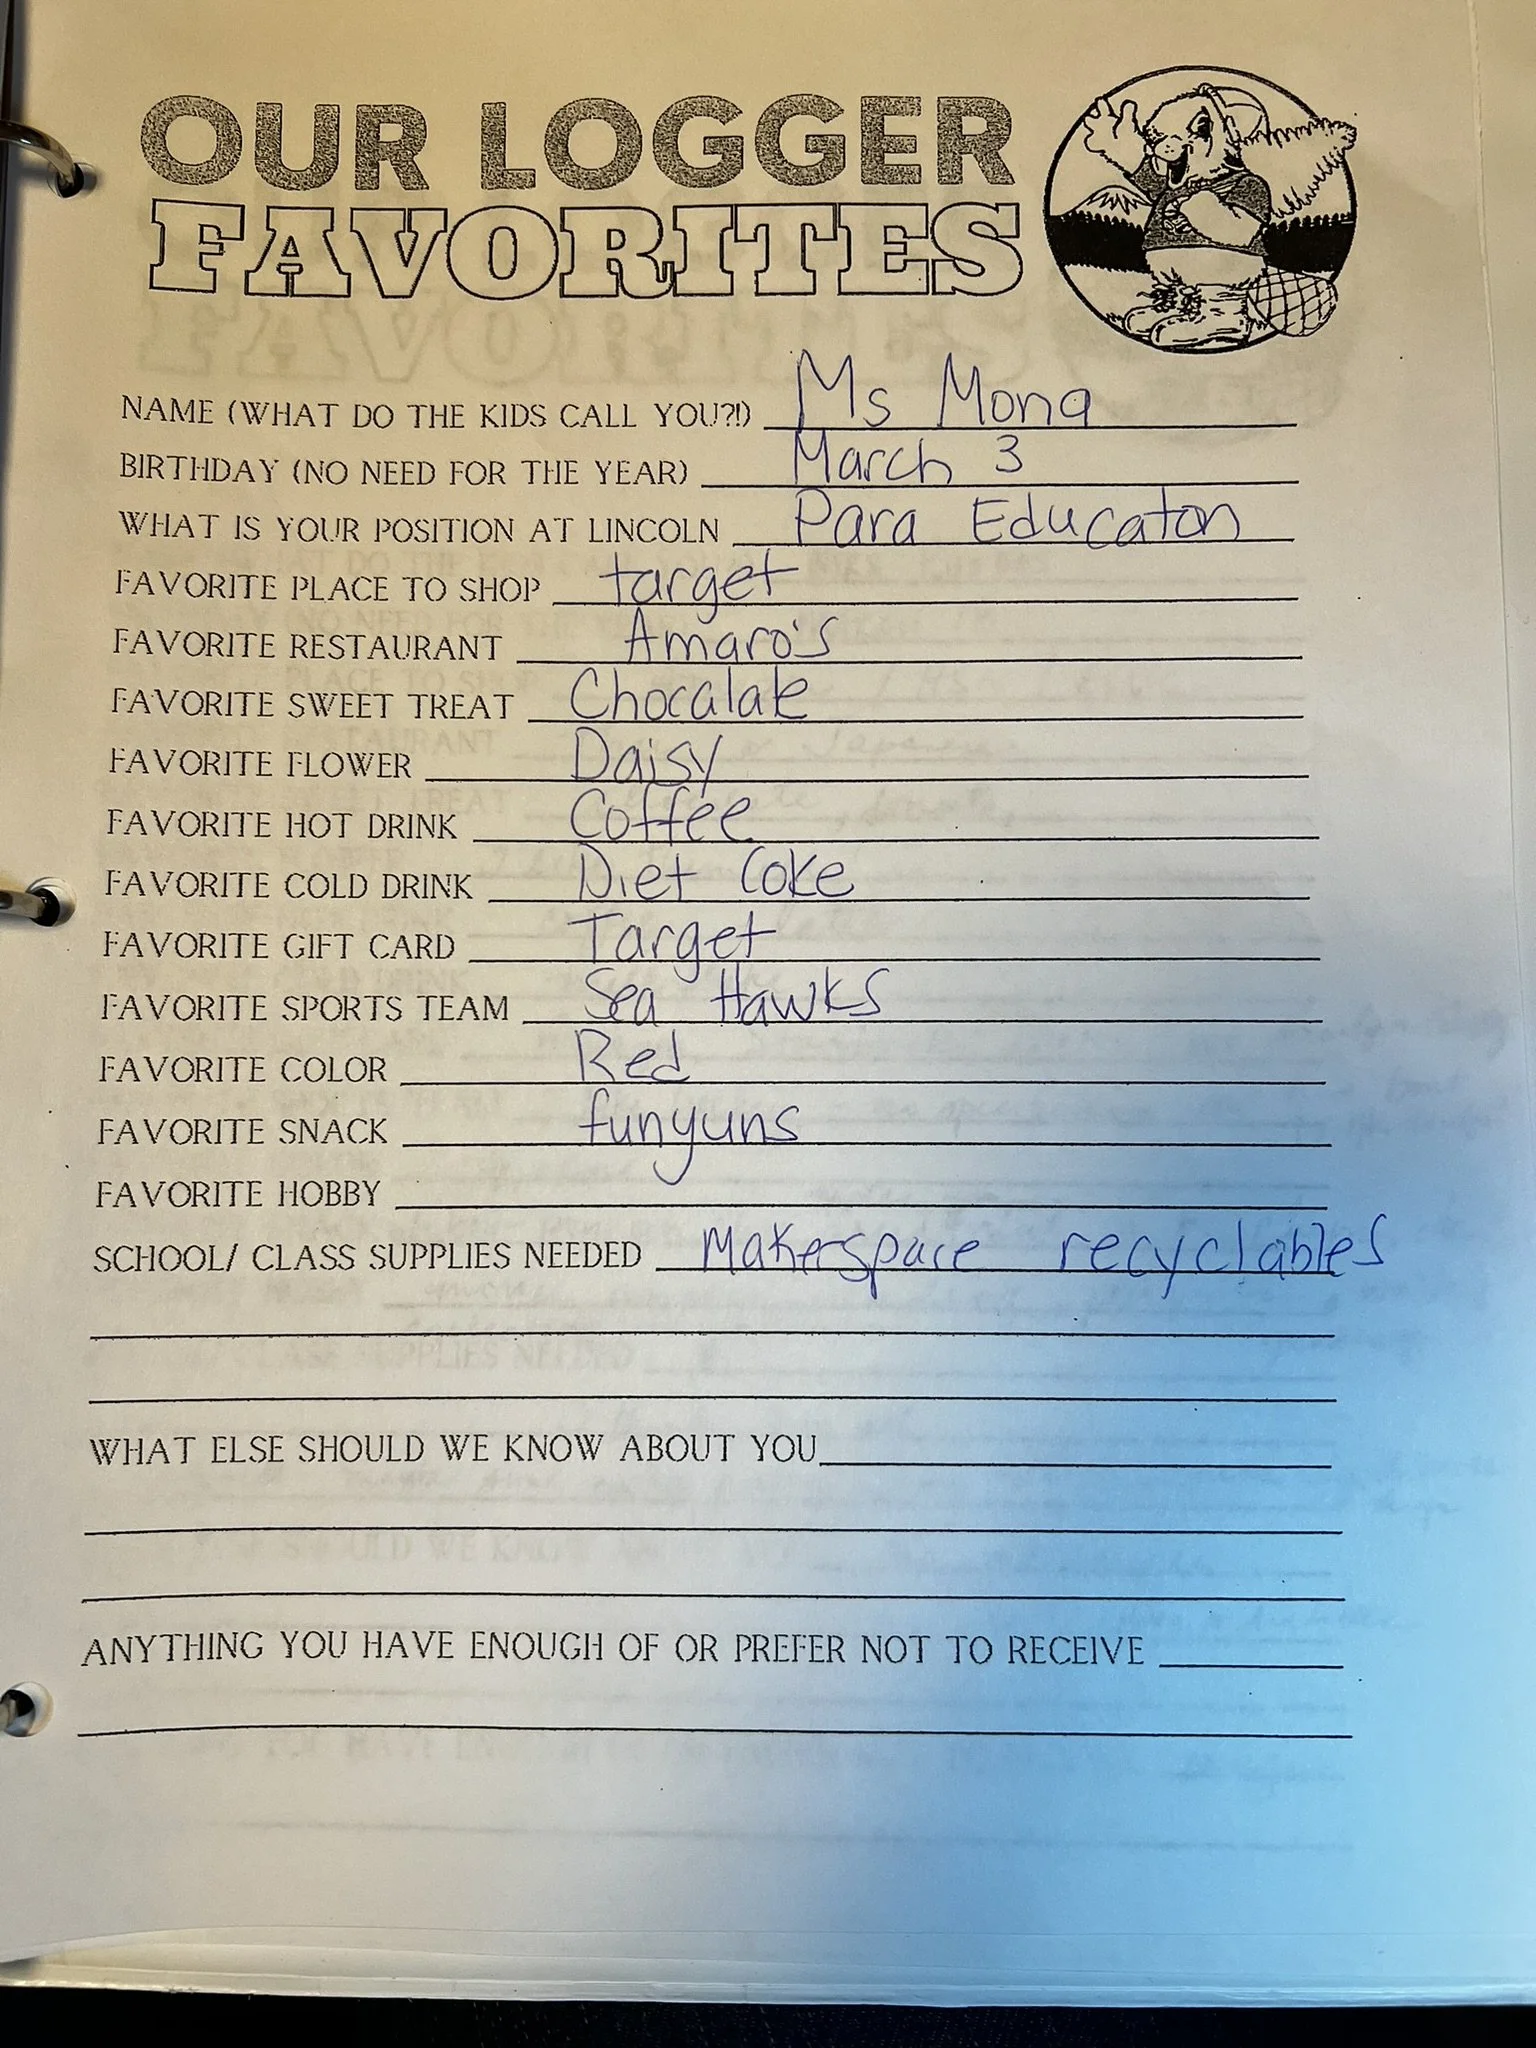 OUR LOGGER
FAVORITES
NAME (WHAT DO THE KIDS CALL YOU?!) Ms Mona
BIRTHDAY (NO NEED FOR THE YEAR) March 3
WHAT IS YOUR POSITION AT LINCOLN Para Educator
FAVORITE PLACE TO SHOP target
FAVORITE RESTAURANT Amaro's
FAVORITE SWEET TREAT Chocalate
FAVORITE FLOWER Daisy
FAVORITE HOT DRINK Coffee
FAVORITE COLD DRINK Diet Coke
FAVORITE GIFT CARD Target
FAVORITE SPORTS TEAM Sea Hawks
FAVORITE COLOR Red
FAVORITE SNACK funyuns
FAVORITE HOBBY
SCHOOL/ CLASS SUPPLIES NEEDED Makerspace recyclables
WHAT ELSE SHOULD WE KNOW ABOUT YOU
ANYTHING YOU HAVE ENOUGH OF OR PREFER NOT TO RECEIVE